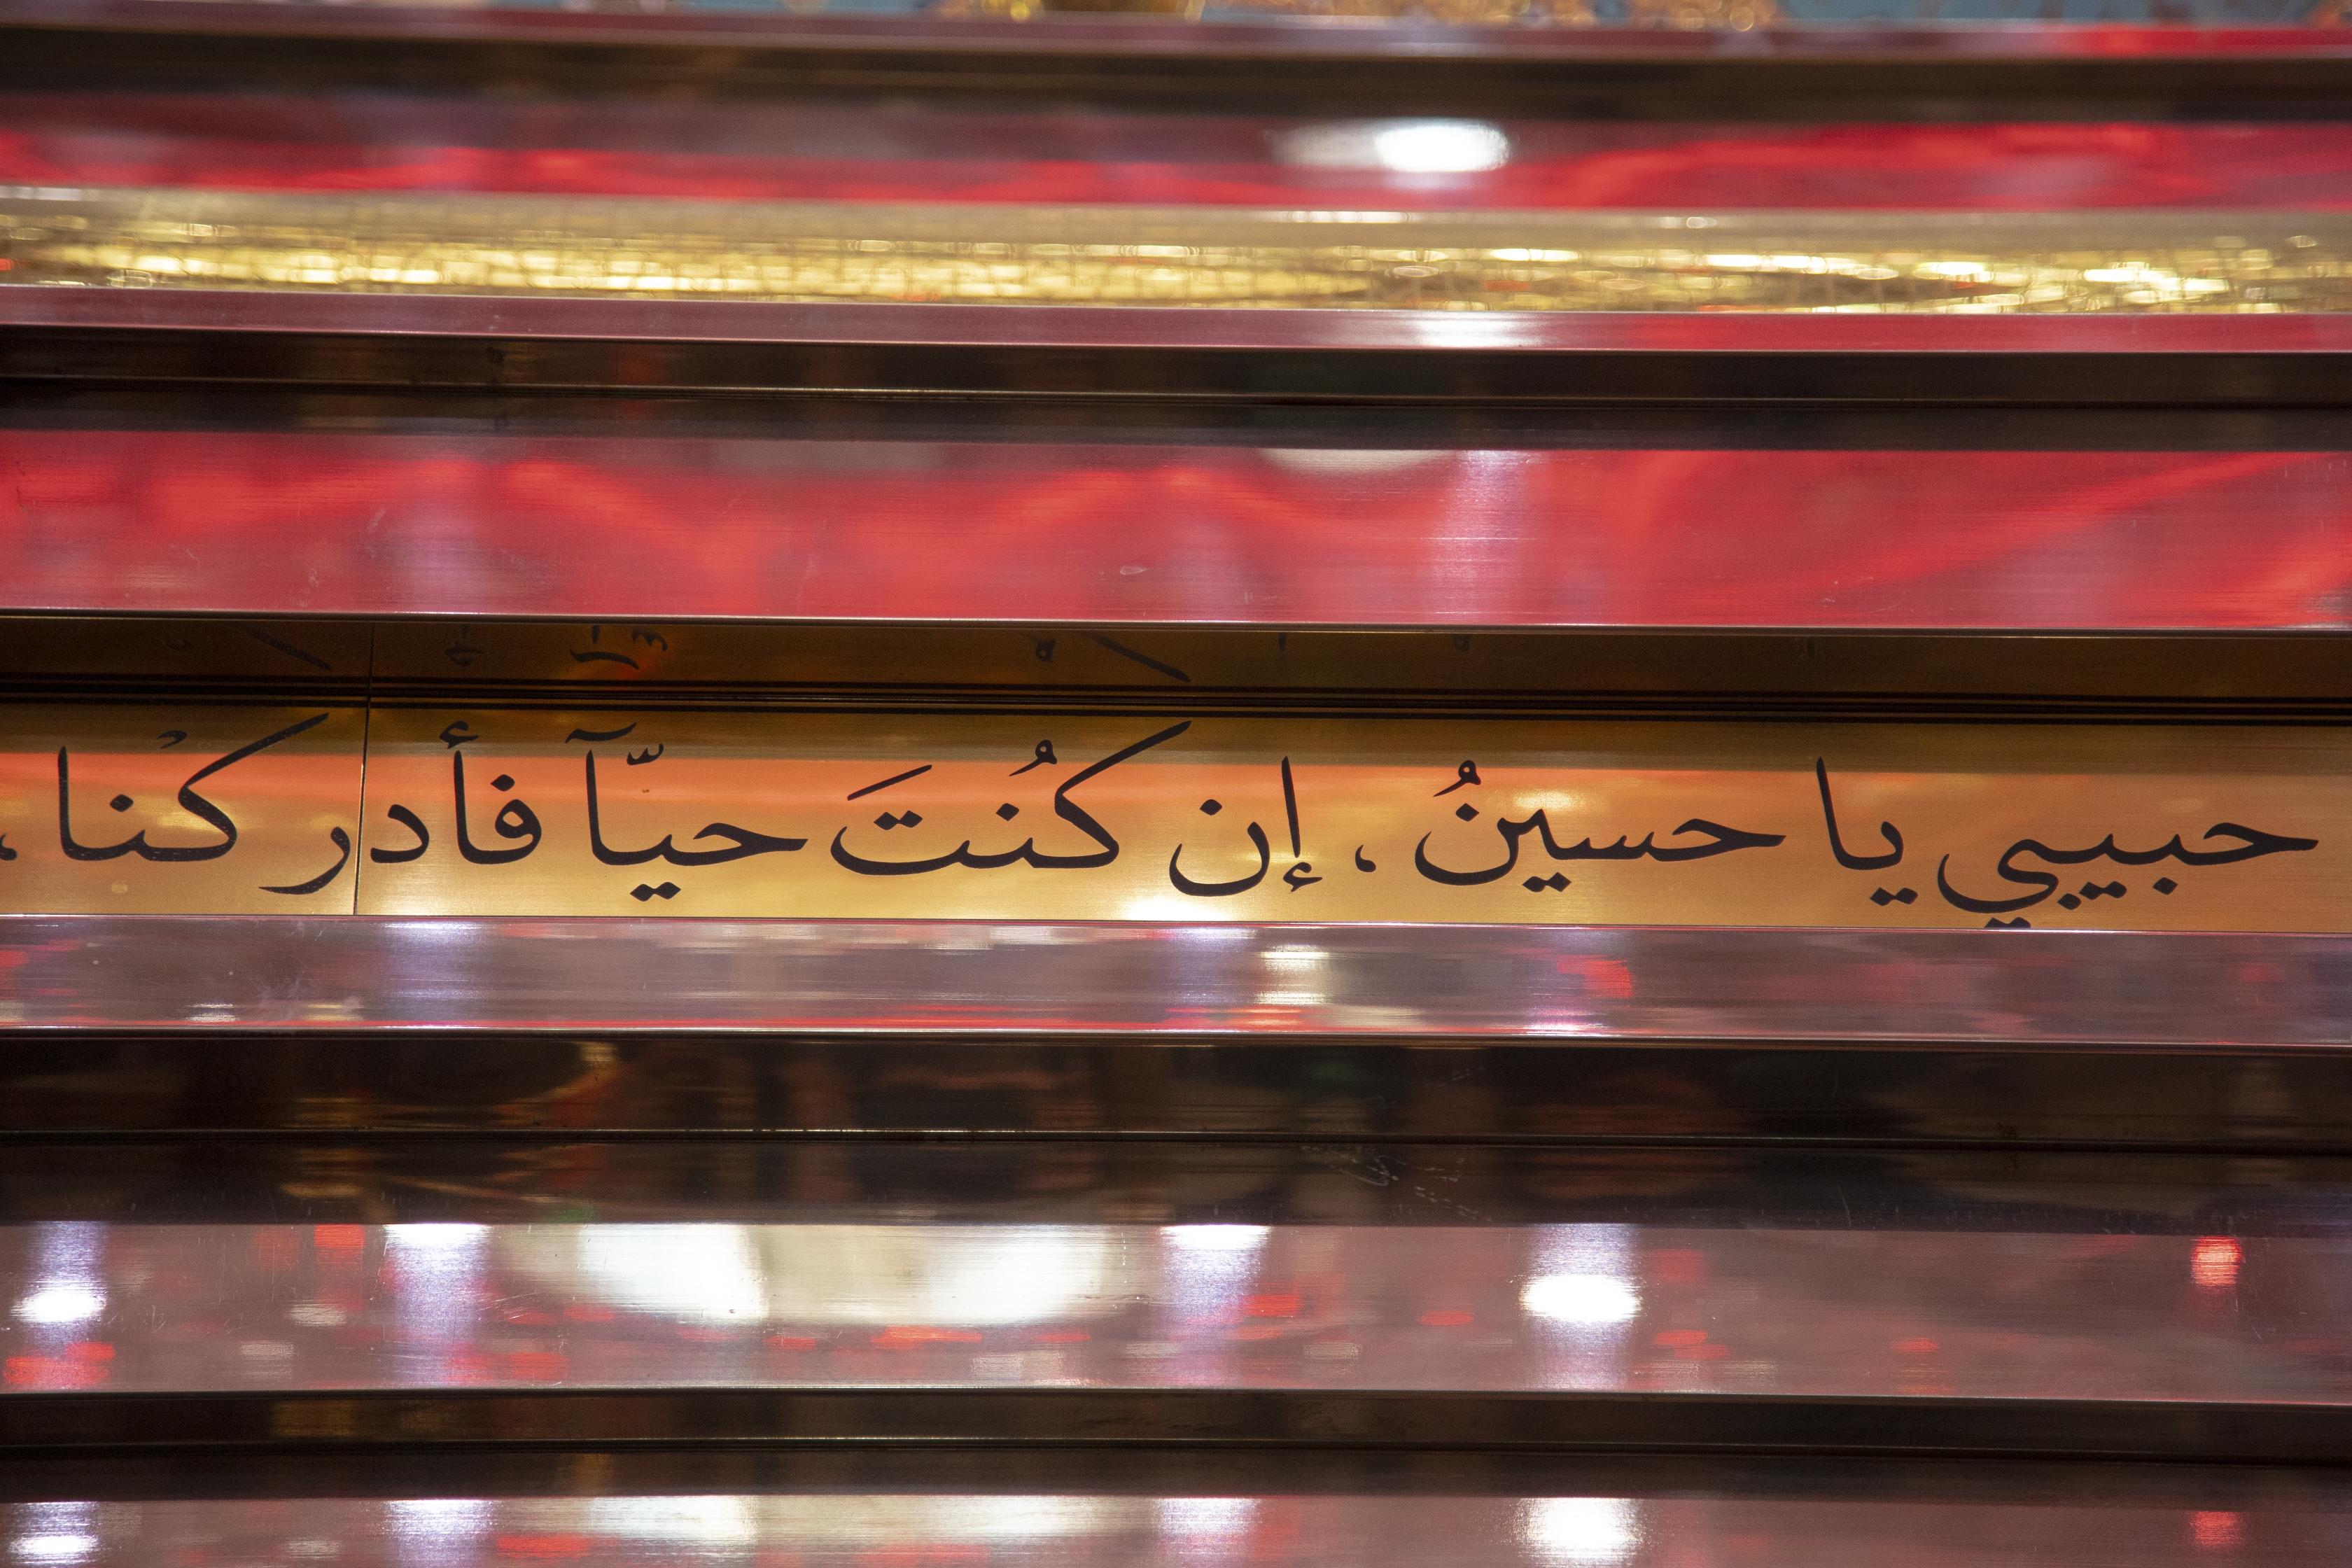 حبيبي يا حسينُ ، إن كُنتَ حيّآ فأدركْنا،